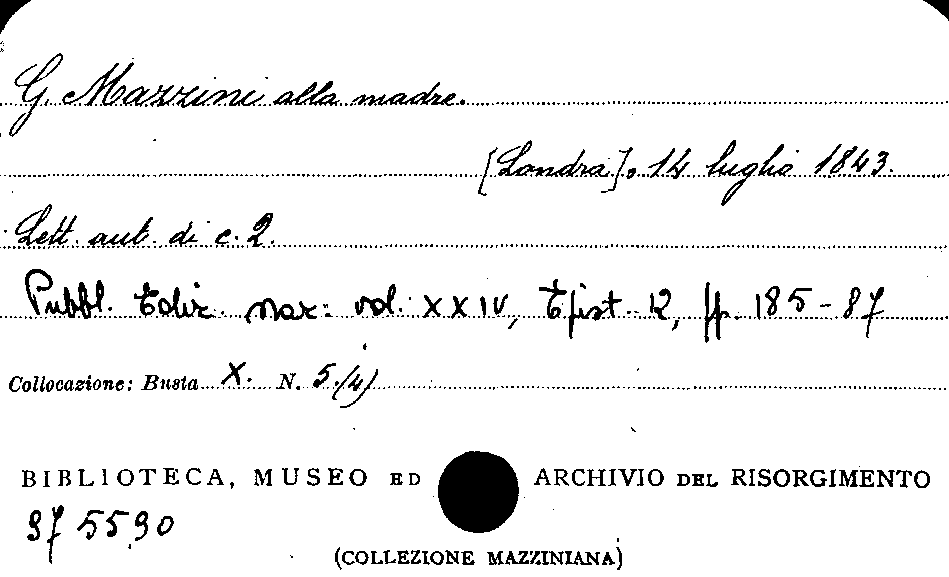 G. Mazzini alla madre.
[Londra], 14 luglio 1843.
Lett. aut. di c. 2.
Pubbl. Ediz. naz: vol. XXIV, Epist. 12, pp. 185-87
Collocazione: Busta X. N. 5/4)
BIBLIOTECA, MUSEO ED ARCHIVIO DEL RISORGIMENTO
975590
(COLLEZIONE MAZZINIANA)